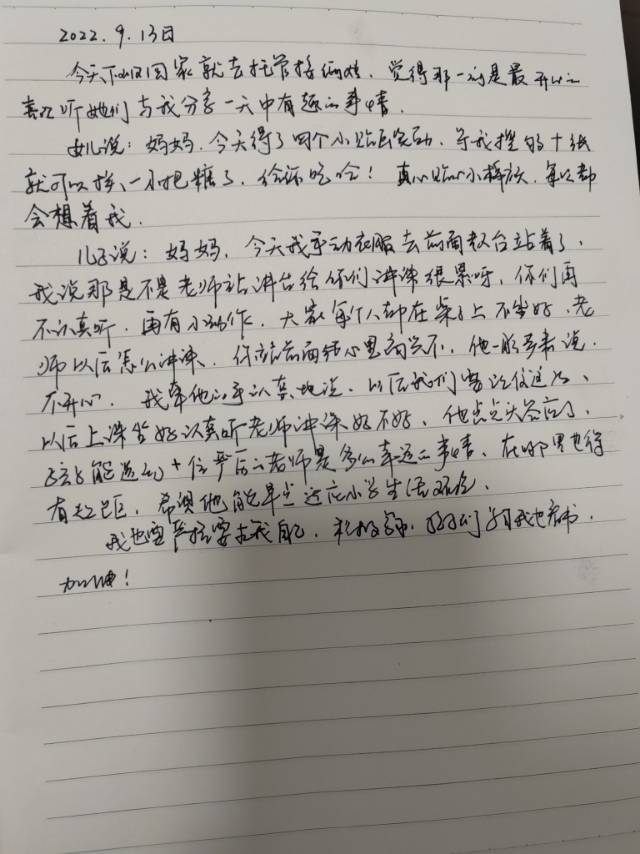 2022.9.13日
今天下班回家就去托管接俩娃，觉得那一刻是最开心的
喜欢听她们与我分享一天中有趣的事情.
女儿说：妈妈，今天得了四个小贴画奖励，等我攒够十张
就可以换一小把糖了，给你吃哈！真心贴心小棉袄，每次都
会想着我.
儿子说：妈妈，今天我手动衣服去前面教台站着了，
我说那是不是老师站讲台给你们讲课很累呀，你们再
不认真听，再有小动作，大家每个人都在桌子上不坐好，老
师以后怎么讲课，你站前面转心里高兴不，他一脸委屈说.
不开心，我牵他的手认真地说，以后我们要记住这次，
以后上课坐好认真听老师讲课好不好，他点点头答应了，
孩子能遇到一位严厉的老师是多么幸运的事情，在哪里也得
有规矩，希望他能早些适应小学生活
我也要严格要求我自己，，你们学习我也看书.
加油！